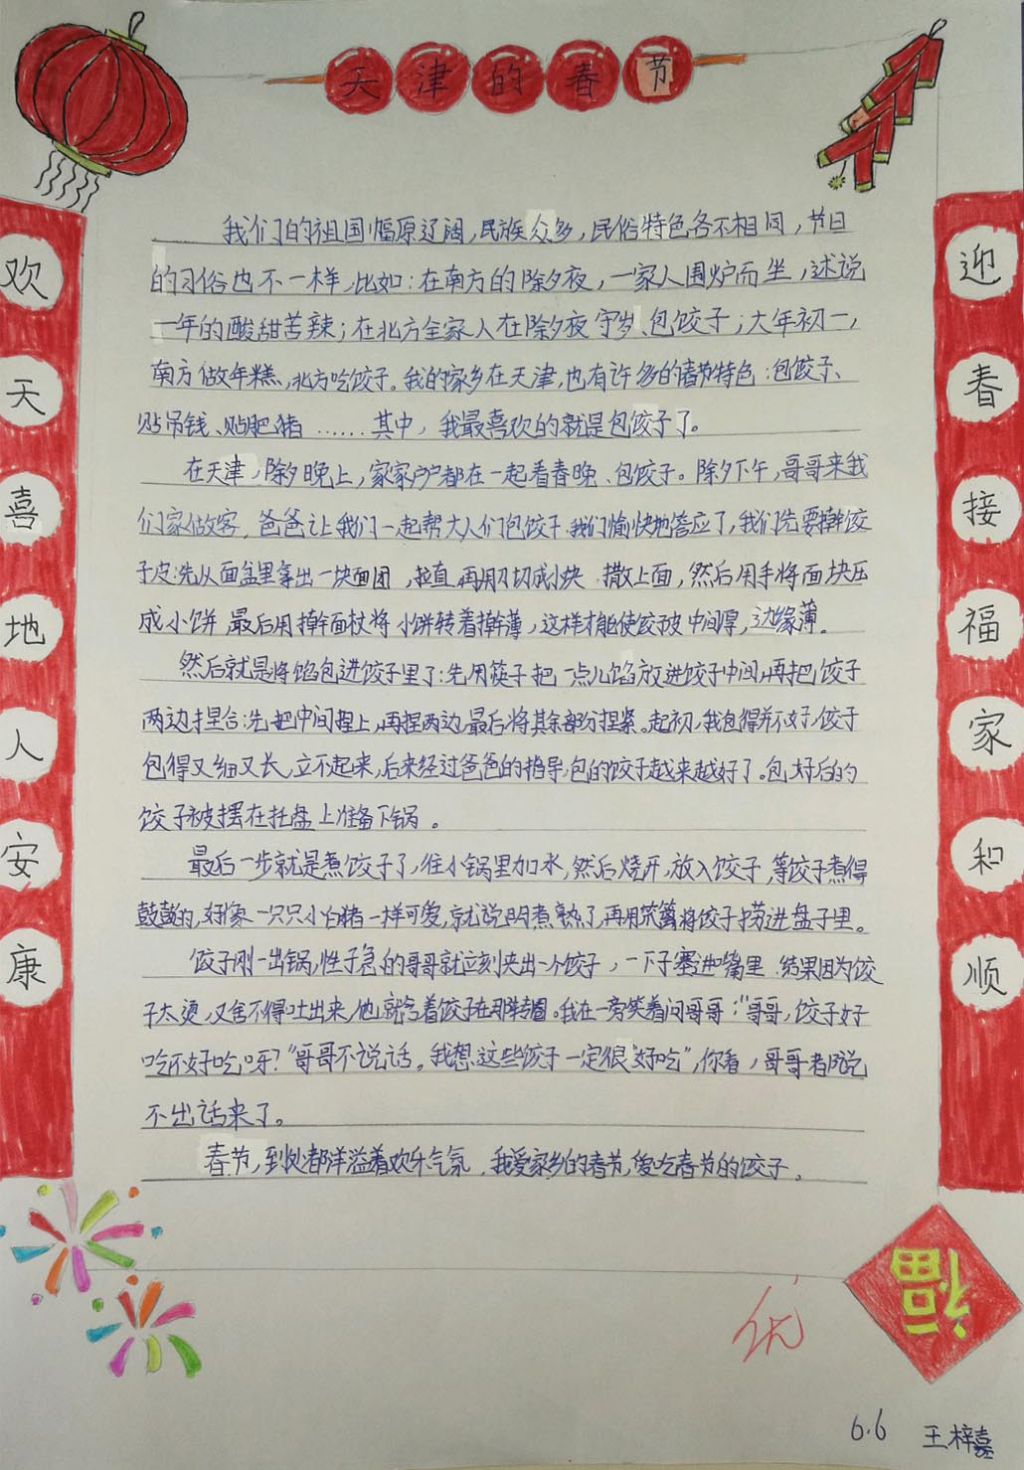 天津的春节
欢天喜地人安康
迎春接福家和顺
我们的祖国幅原辽阔，民族众多，民俗特色各不相同，节日
的习俗也不一样，比如：在南方的除夕夜，一家人围炉而坐，述说
一年的酸甜苦辣；在北方全家人在除夕夜守岁、包饺子；大年初一，
南方做年糕，北方吃饺子。我的家乡在天津，也有许多的春节特色：包饺子、
贴吊钱、贴肥猪……其中，我最喜欢的就是包饺子了。
在天津，除夕晚上，家家户户都在一起看春晚、包饺子。除夕下午，哥哥来我
们家做客，爸爸让我们一起帮大人们包饺子，我们愉快地答应了，我们先要擀饺
子皮：先从面盆里拿出一块面团，拉直，再用刀切成小块，撒上面，然后用手将面块压
成小饼，最后用擀面杖将小饼转着擀薄，这样才能使饺子皮中间厚，边缘薄。
然后就是将馅包进饺子里了：先用筷子把一点儿馅放进饺子中间，再把饺子
两边捏合：先把中间捏上，再捏两边，最后将其余部分捏紧。起初，我包得并不好，饺子
包得又细又长，立不起来，后来经过爸爸的指导，包的饺子越来越好了。包好后的
饺子被摆在托盘上准备下锅。
最后一步就是煮饺子了，往小锅里加水，然后烧开，放入饺子，等饺子煮得
鼓鼓的，好像一只只小白猪一样可爱，就说明煮熟了，再用笊篱将饺子捞进盘子里。
饺子刚一出锅，性子急的哥哥就立刻夹出一个饺子，一下子塞进嘴里，结果因为饺
子太烫，又舍不得吐出来，他就含着饺子在那转圈。我在一旁笑着问哥哥：“哥哥，饺子好
吃不好吃呀？”哥哥不说话。我想，这些饺子一定很“好吃”，你看，哥哥都说
不出话来了。
春节，到处都洋溢着欢乐气氛，我爱家乡的春节，爱吃春节的饺子。
福
优
6.6 王梓嘉